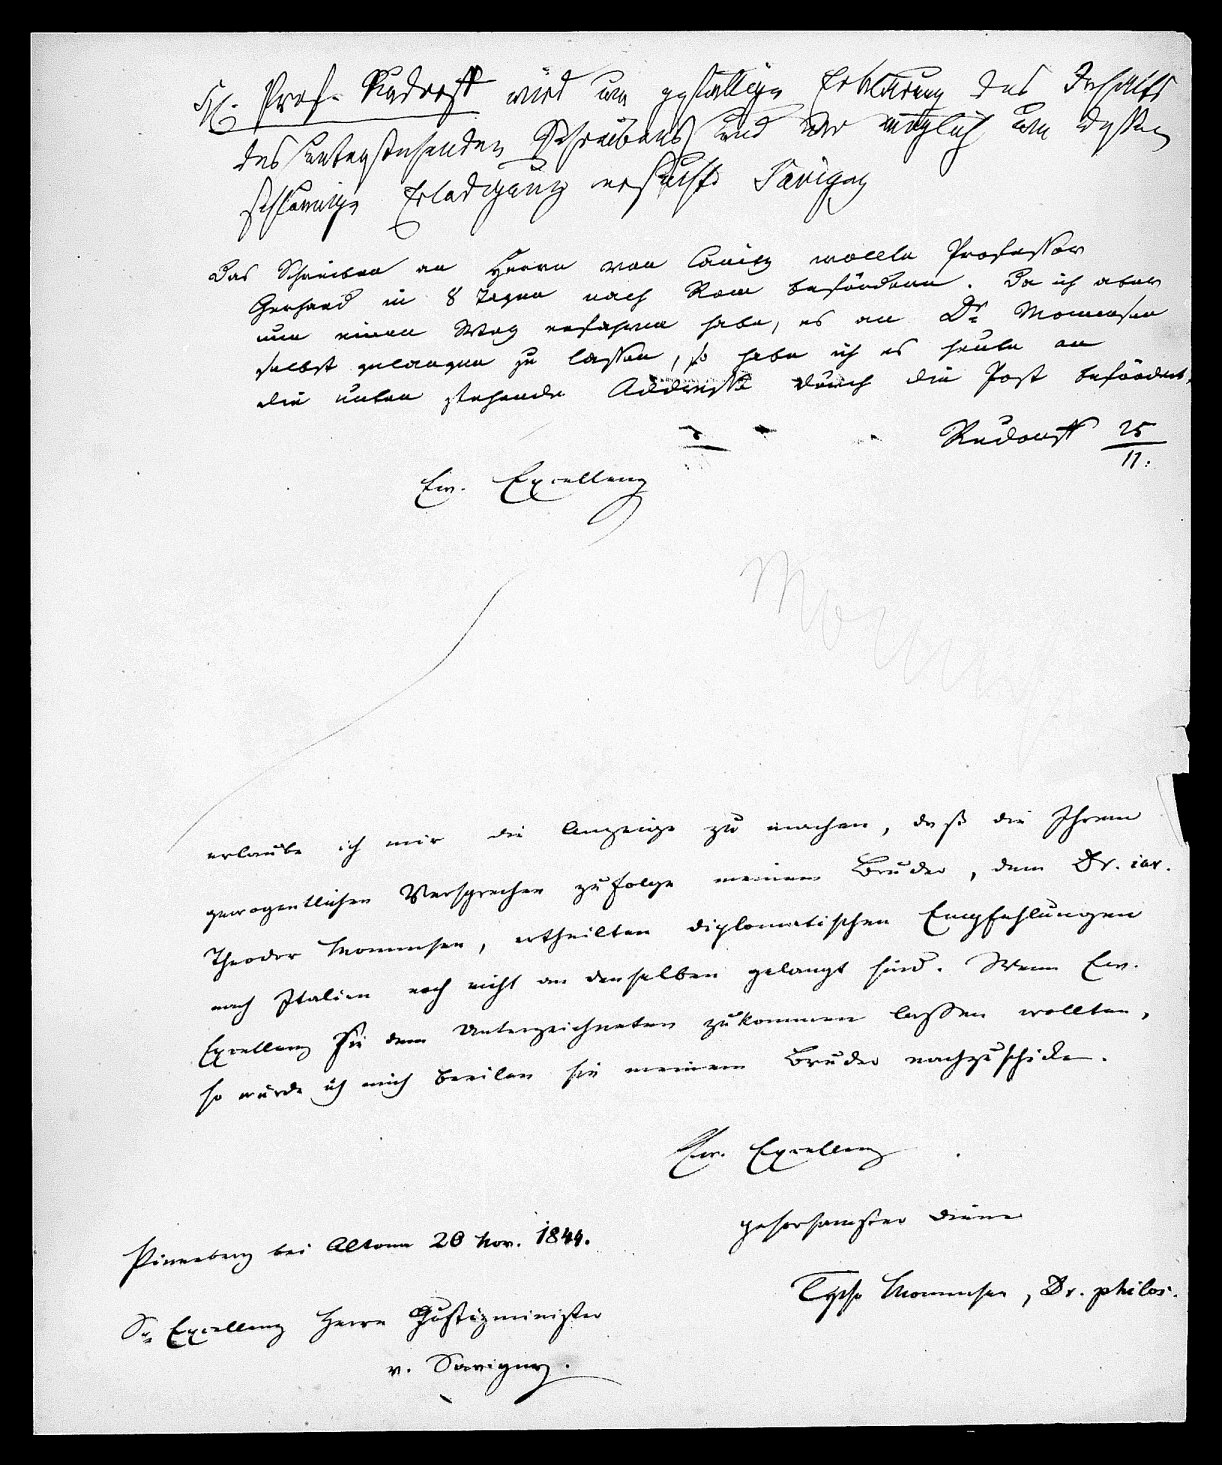 H. Prof. Rudorff wird um gefällige Erklärung des Inhalts
des untenstehenden Schreibens und wo möglich um dessen
schleunige Erledigung ersucht. Savigny
Das Schreiben an Herrn von Canitz wollte Professor
Gerhard in 8 Tagen nach Rom befördern. Da ich aber
nun einen Weg erfahren habe, es an Dr. Mommsen
selbst gelangen zu lassen, so habe ich es heute an
die unten stehende Addresse durch die Post befördert.
Rudorff 25
11.
Ew. Excellenz
Momms
erlaube ich mir die Anzeige zu machen, daß die Ihrem
gewogentlichen Versprechen zufolge meinem Bruder, dem Dr. iur.
Theodor Mommsen, ertheilten diplomatischen Empfehlungen
nach Italien noch nicht an denselben gelangt sind. Wenn Ew.
Excellenz sie dem Unterzeichneten zukommen lassen wollten,
so würde ich mich beeilen sie meinem Bruder nachzuschicken.
Ew. Excellenz
gehorsamster Diener
Pinneberg bei Altona 20 Nov. 1844.
Tycho Mommsen, Dr. philos.
Sr Excellenz Herrn Justizminister
v. Savigny.